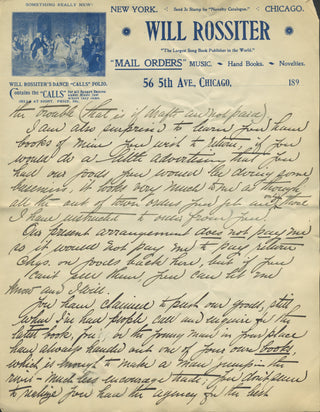 SOMETHING REALLY NEW!
NEW YORK. Send 2c Stamp for "Novelty Catalogue." CHICAGO.
WILL ROSSITER
"The Largest Song Book Publisher in the World."
"MAIL ORDERS" MUSIC. Hand Books. Novelties.
WILL ROSSITER'S DANCE "CALLS" FOLIO.
Contains the "CALLS"
56 5TH AVE., CHICAGO, 189
the trouble (that is if drafts are not paid)
I am also surprised to learn you have
books of mine you wish to return, if you
would do a little advertising that you
had our goods you would be doing some
business, it looks very much to me as though
all the out of town orders you get are those
I have instructed to order from you.
Our present arrangement does not pay me
as it would not pay me to pay return
Chgs. on goods back here but if you
can't sell them you can let me
know and I will.
You have claimed to push our goods, still
when I've had people call and enquire for the
latest book, you, or the young man in your place
have always handed out one of your own books
which is enough to make a man jump in the
river - much less encourage trade, you don't seem
to realize you have the agency for the best